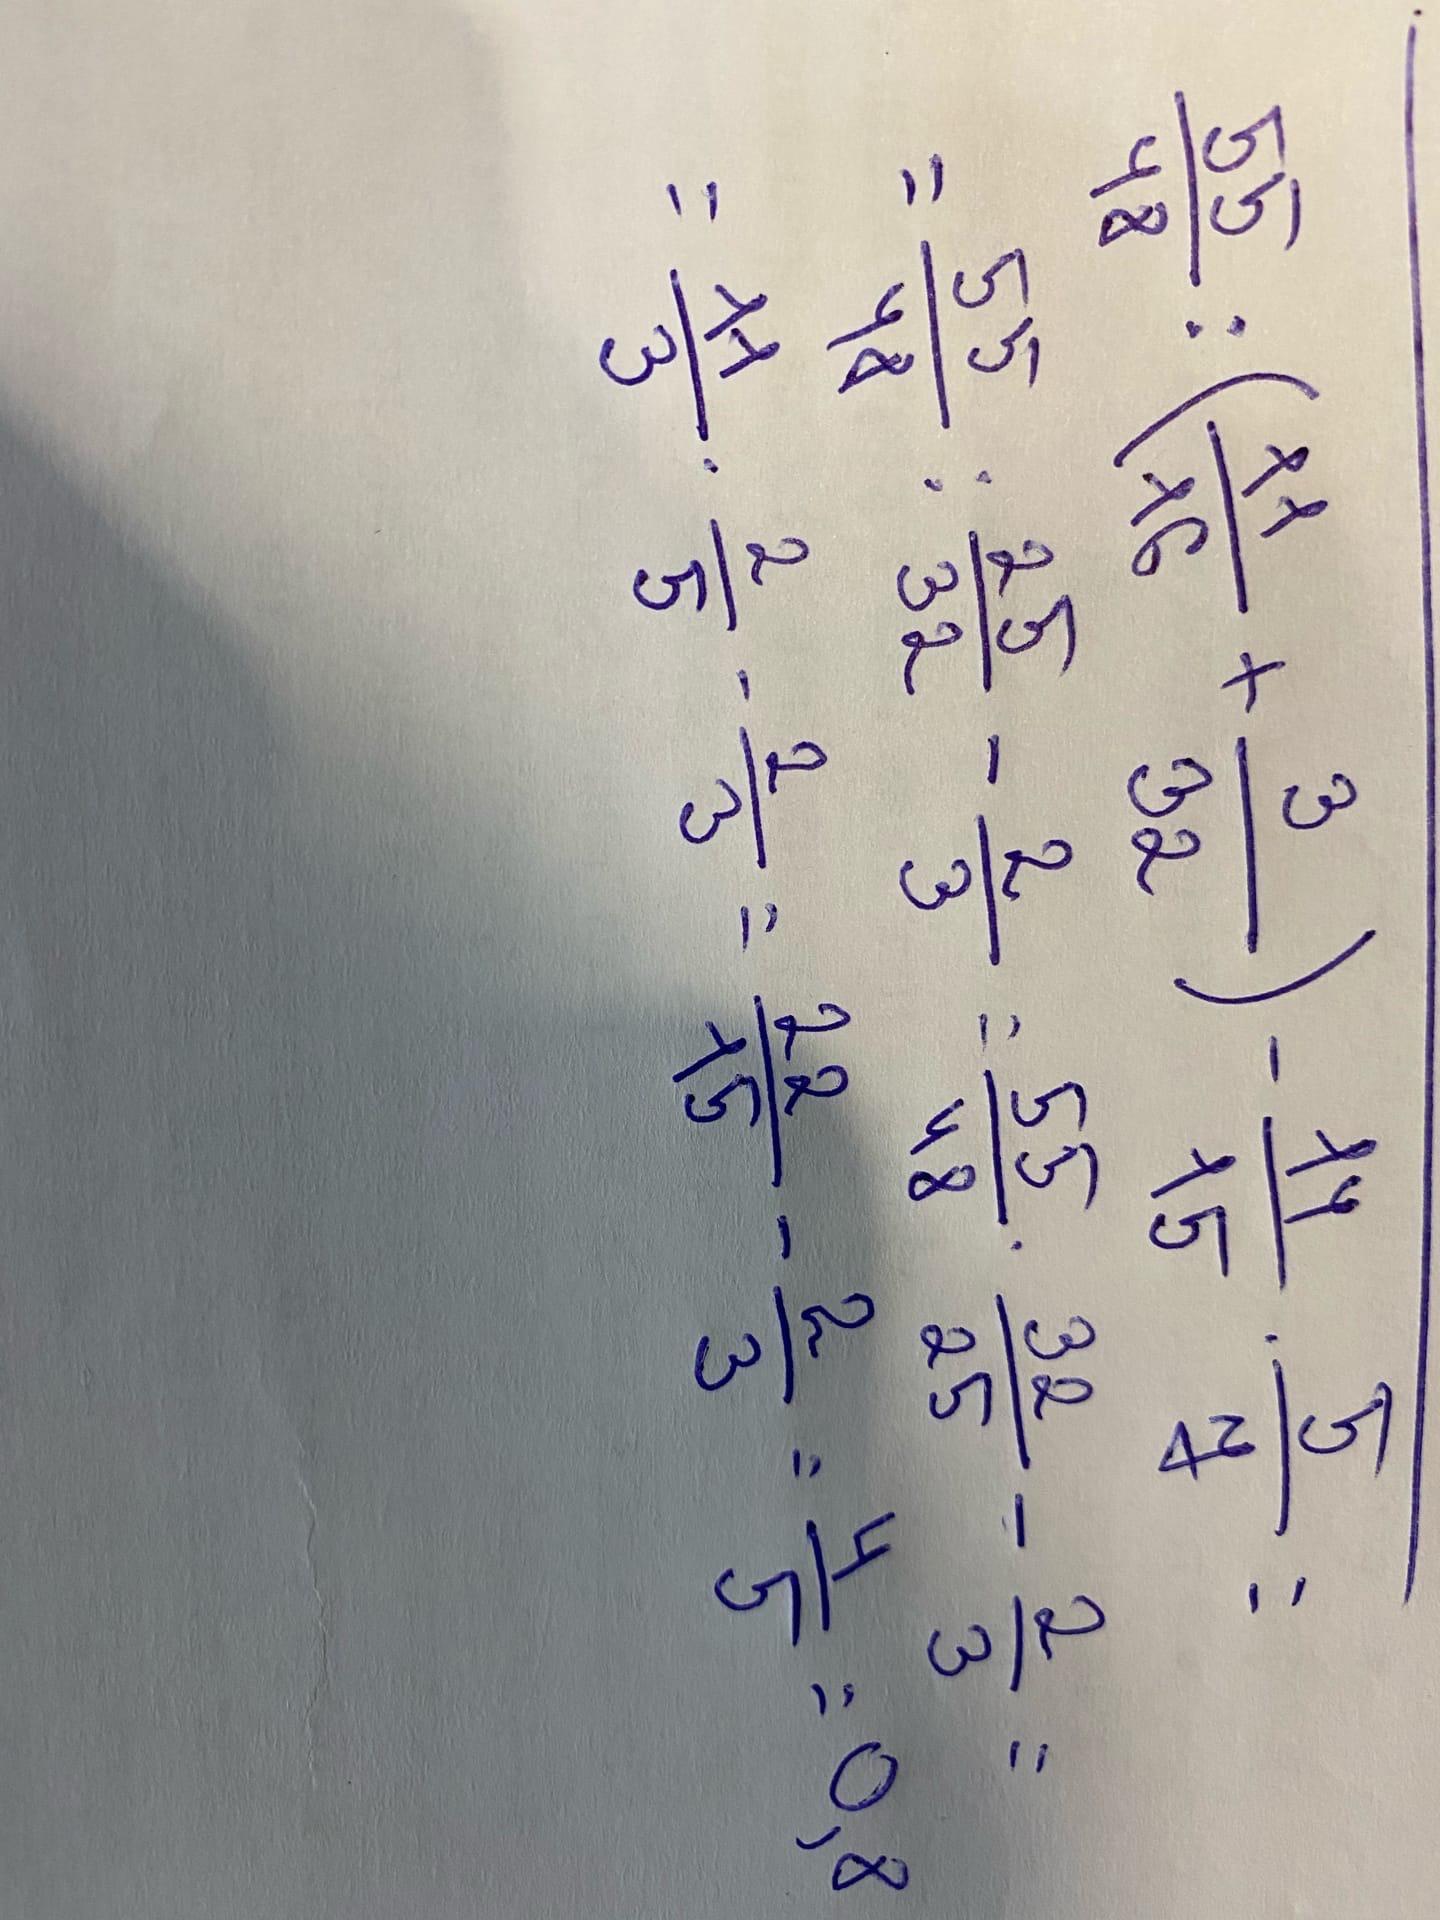 55/48 : (11/16 + 3/32) - 14/15 · 5/7 =
= 55/48 : 25/32 - 2/3 = 55/48 · 32/25 - 2/3 =
= 11/3 · 2/5 - 2/3 = 22/15 - 2/3 = 4/5 = 0,8